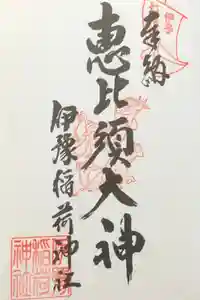 奉納
恵比須大神
伊豫稲荷神社
稲荷
神社